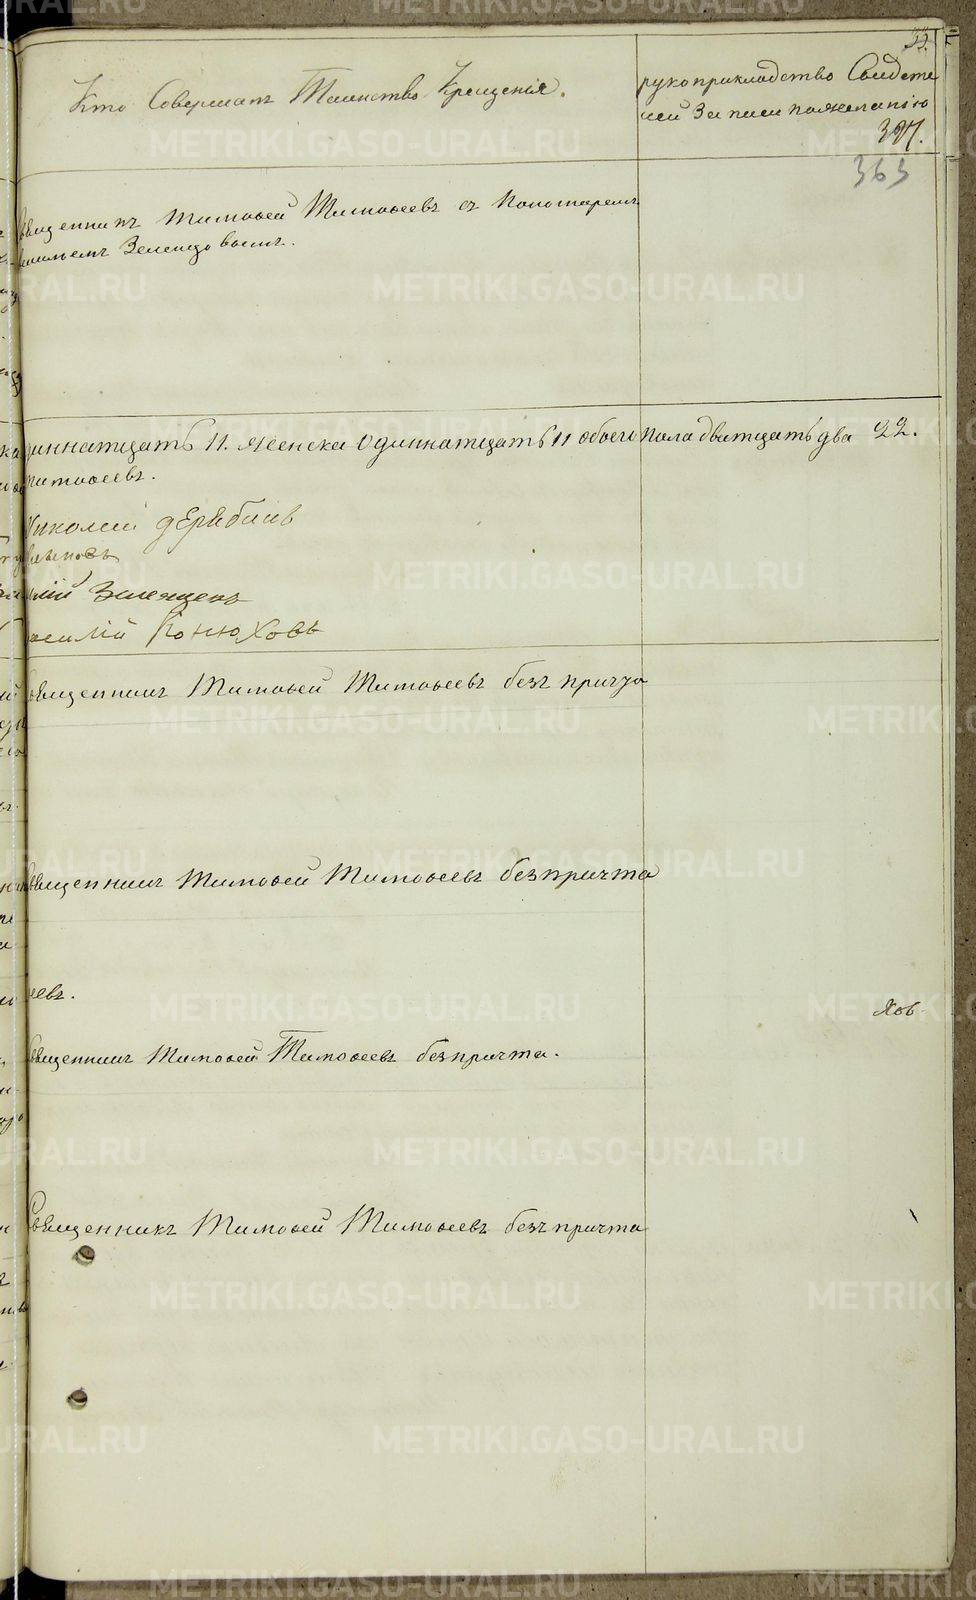 33.
Кто Совершалъ Таинство Крещенія.
рукоприкладство Свидете
лей Записи по желанію
327.
363
Священникъ Тимофей Тимофеевъ съ Пономаремъ
Зеленцовымъ.
диннатцать 11. женска Одиннатцать 11 обоего пола дватцать два 22.
Тимофеевъ.
Николай дерябинъ
лій Зеленцевъ
Василій Конюховъ
Священникъ Тимофей Тимофеевъ безъ причта
Священникъ Тимофей Тимофеевъ безъ причта
еевъ.
Хов
Священникъ Тимофей Тимофеевъ безпричта.
Священникъ Тимофей Тимофеевъ безъ причта
METRIKI.GASO-URAL.RU